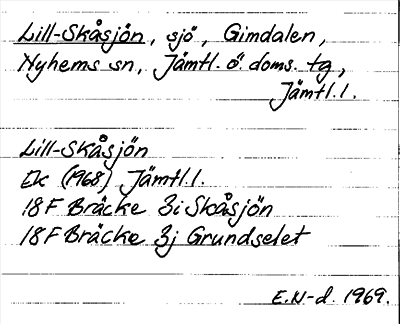 Lill-Skåsjön, sjö, Gimdalen,
Nyhems sn, Jämtl. ö. doms. tg,
Jämtl.l.
Lill-Skåsjön
Ek (1968) Jämtl.l.
18F Bräcke 3i Skåsjön
18F Bräcke 3j Grundselet
E.N-d. 1969.